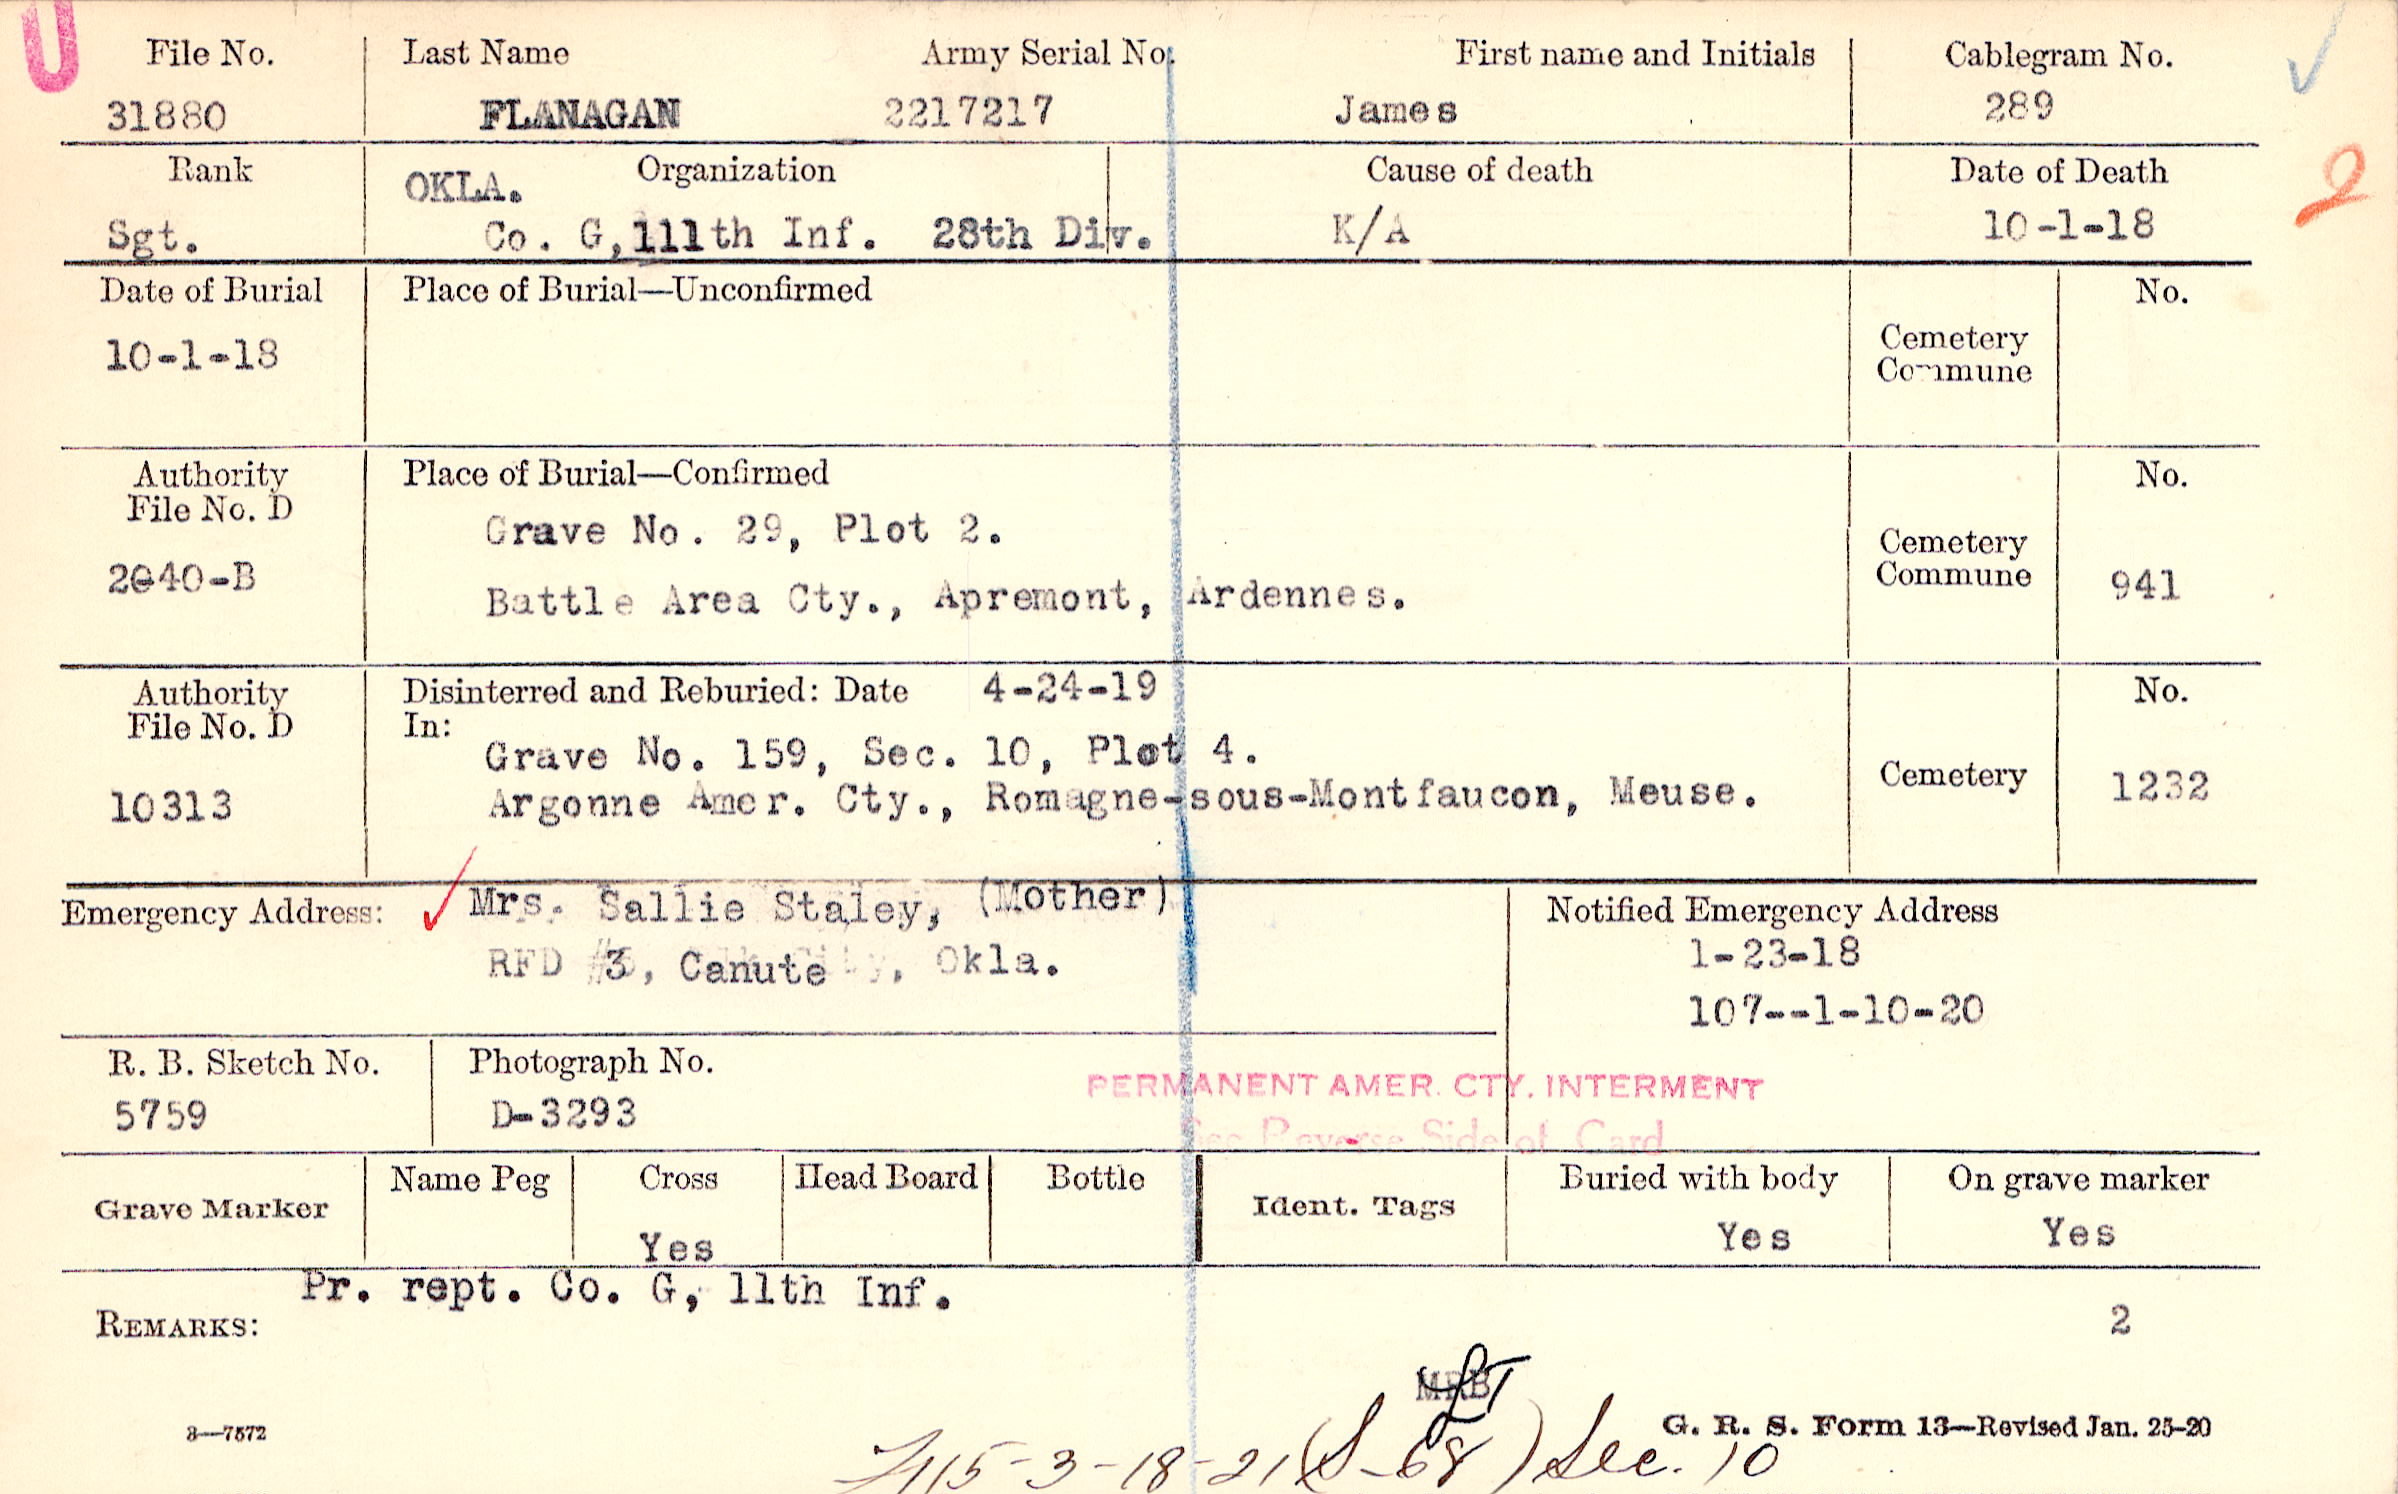 U
File No. Last Name Army Serial No. First name and Initials Cablegram No.
31880 FLANAGAN 2217217 James 289
Rank Organization Cause of death Date of Death
OKLA.
Sgt. Co. G, 111th Inf. 28th Div. K/A 10-1-18
2
Date of Burial Place of Burial—Unconfirmed No.
10-1-18
Cemetery
Commune
Authority Place of Burial—Confirmed No.
File No. D
Grave No. 29, Plot 2.
Cemetery
2640-B Commune 941
Battle Area Cty., Apremont, Ardennes.
Authority Disinterred and Reburied: Date 4-24-19 No.
File No. D In:
Grave No. 159, Sec. 10, Plot 4.
Cemetery 1232
10313 Argonne Amer. Cty., Romagne-sous-Montfaucon, Meuse.
Emergency Address: Mrs. Sallie Staley, (Mother) Notified Emergency Address
RFD #3, Canute, Okla. 1-23-18
107--1-10-20
R. B. Sketch No. Photograph No.
5759 D-3293
PERMANENT AMER. CTY. INTERMENT
See Reverse Side of Card
Grave Marker Name Peg Cross Head Board Bottle Ident. Tags Buried with body On grave marker
Yes Yes Yes
Pr. rept. Co. G, 11th Inf.
REMARKS: 2
MRB
3—7572 G. R. S. Form 13—Revised Jan. 25-20
3-18-21 (S-68) Sec. 10